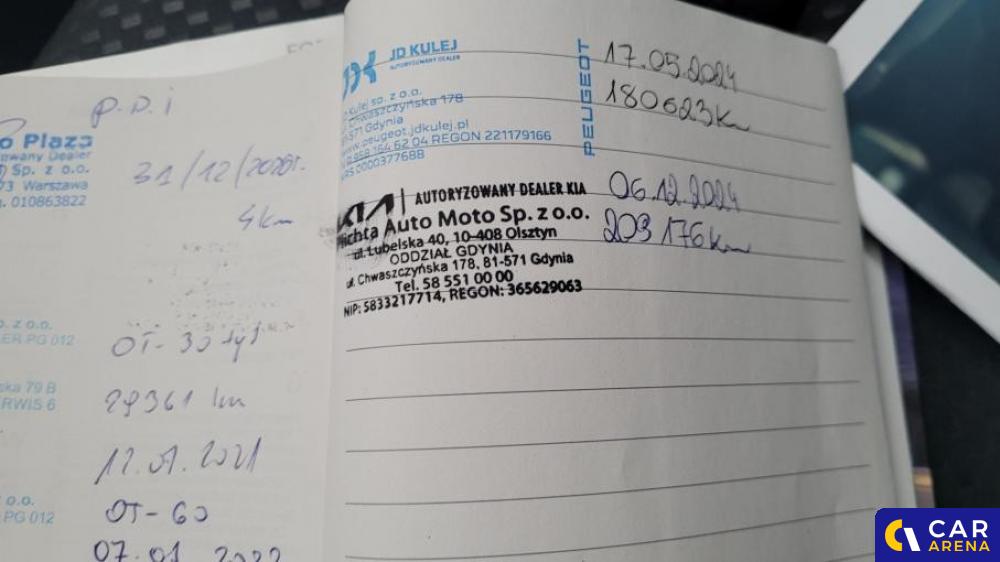 P.D.i
o Plaza
owany Dealer
Sp. z o.o.
73 Warszawa
. 010863822
31/12/2020r.
4km
. z o.o.
ER PG 012
OT-30 tyś
ska 79 B
RWIS 6
29361 km
12.07.2021
o.o.
PG 012
OT-60
07.01 2022
JD KULEJ
AUTORYZOWANY DEALER
Kulej sp. z o.o.
Chwaszczyńska 178
-571 Gdynia
www.peugeot.jdkulej.pl
958 164 62 04 REGON 221179166
KRS 0000377688
PEUGEOT
17.05.2024
180623km
KIA | AUTORYZOWANY DEALER KIA
Michta Auto Moto Sp. z o.o.
ul. Lubelska 40, 10-408 Olsztyn
ODDZIAŁ GDYNIA
ul. Chwaszczyńska 178, 81-571 Gdynia
Tel. 58 551 00 00
NIP: 5833217714, REGON: 365629063
06.12.2024
203 176km
CAR
ARENA